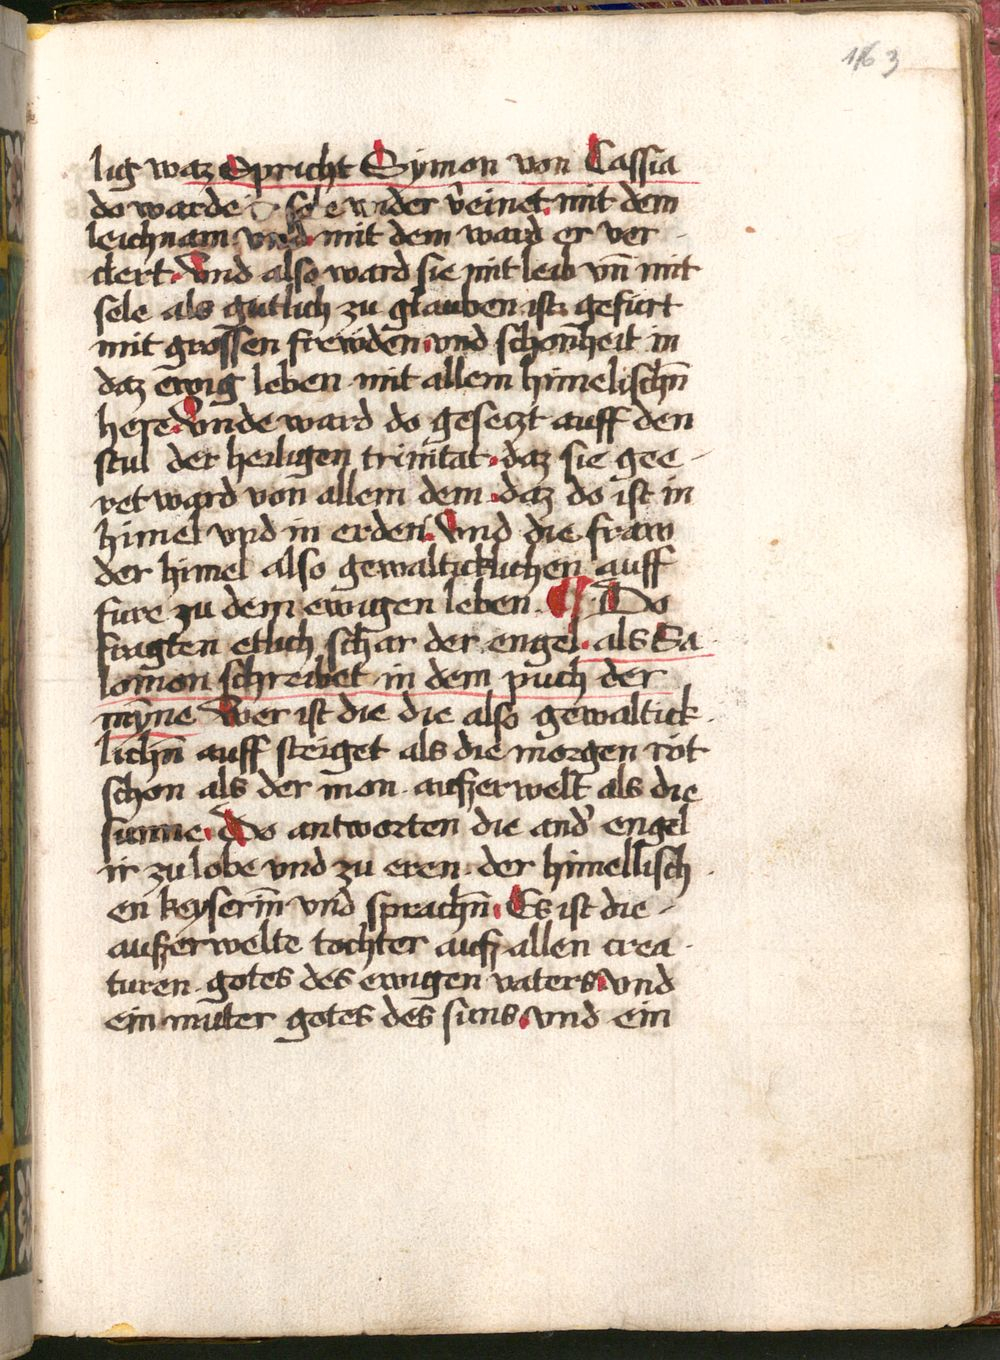 163
lig waz Spricht Symon von Cassia
do warde sele wider v̾einet mit dem
leichnam vnd mit dem ward er ver
clert. Vnd also ward sie mit leib vn̄ mit
sele als gutlich zu glauben ist gefurt
mit grossen frewden vnd schonheit in
daz ewig leben mit allem himelischn̄
here. Vnde ward do gesetzt auff den
stul der heiligen trinitat. daz sie gee
ret ward von allem dem. daz do ist in
himel vnd in erden. Vnd die fraw
der himel also gewalticklichen auff
fure zu dem ewigen leben. ¶ Do
fragten etlich schar der engel. als Sa
lomon schreibet in dem puch der
myne Wer ist die die also gewaltick
lichn̄ auff steiget als die morgen rot
schon als der mon. außerwelt als die
sunne. Do antworten die and̾ engel
ir zu lobe vnd zu eren. der himellisch
en keyserin̄ vnd sprachn̄. Es ist die
außerwelte tochter auß allen crea
turen. gotes des ewigen vaters. Vnd
ein muter gotes des suns. vnd ein